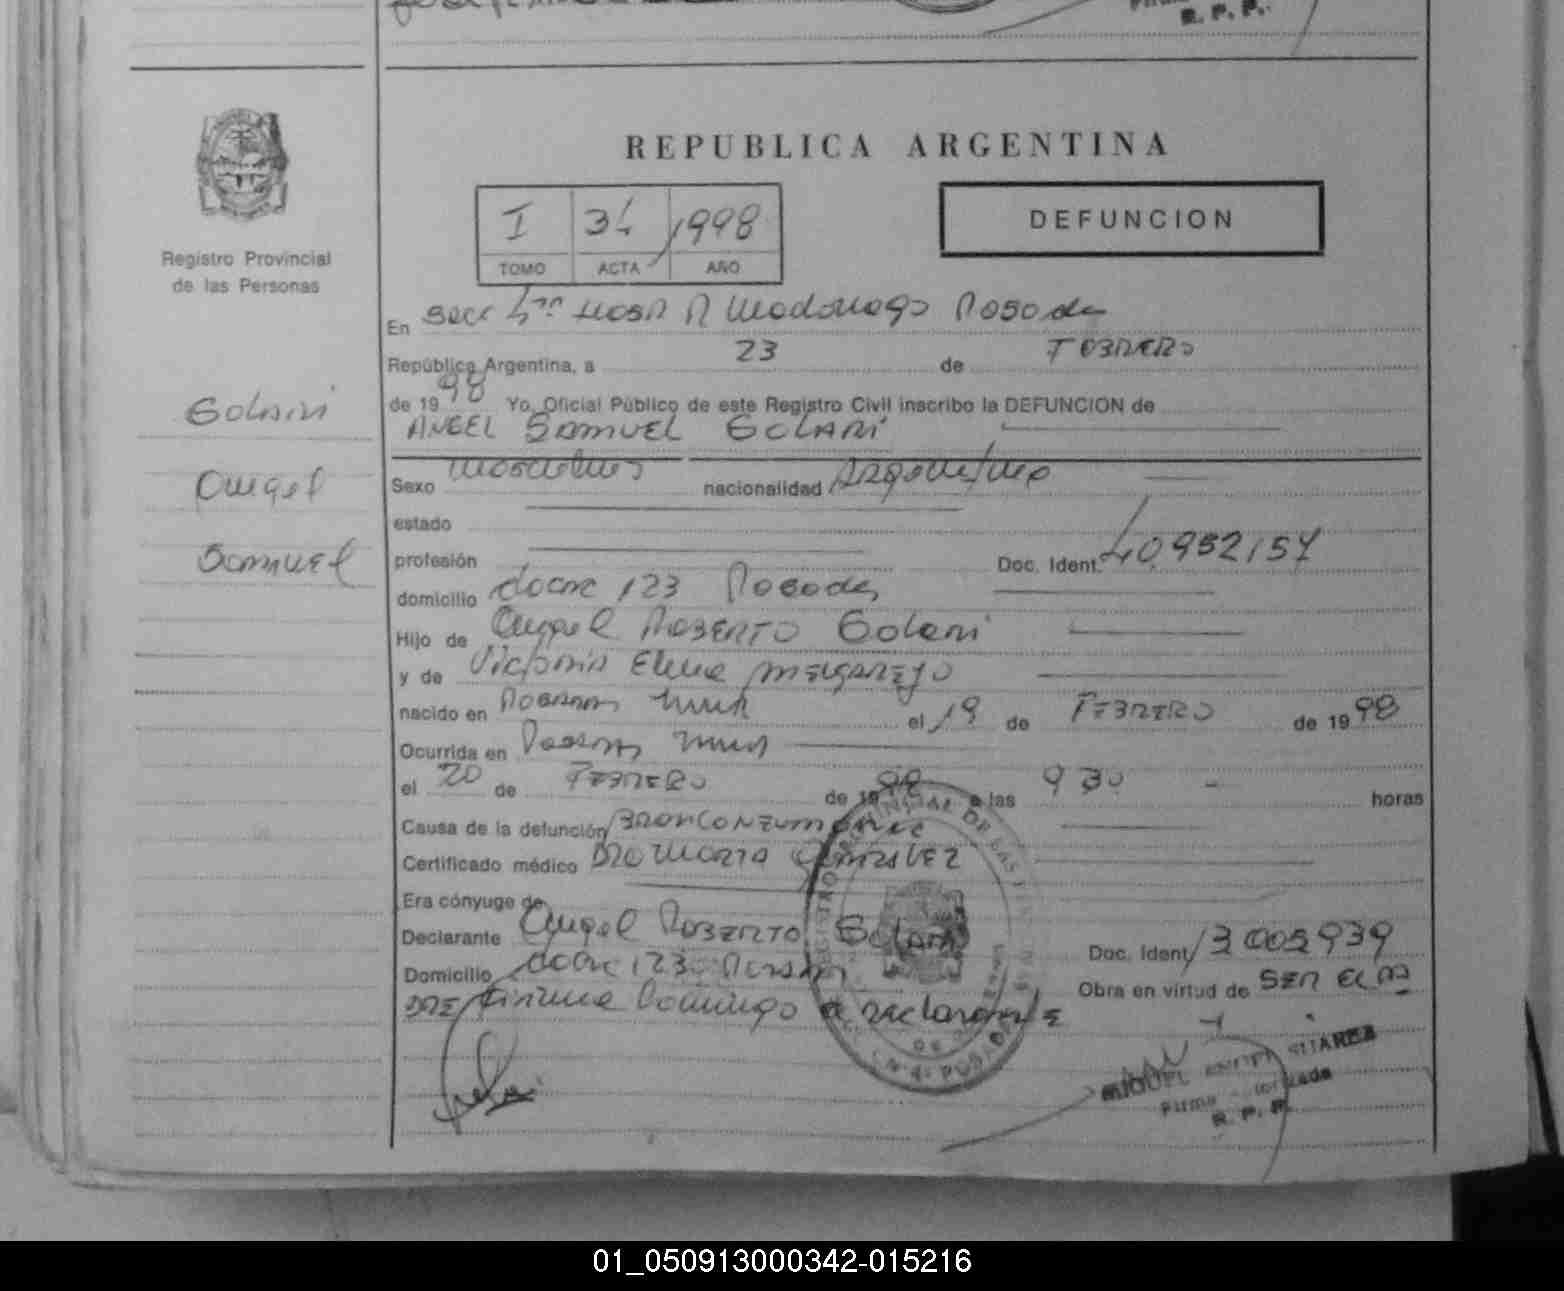 R. P. P.
REPUBLICA ARGENTINA
I 34 1998
TOMO ACTA AÑO
DEFUNCION
Registro Provincial
de las Personas
Solari
Angel
Samuel
En Secc Hosp R Madariaga Posadas
República Argentina, a 23 de FEBRERO
de 19 98 Yo, Oficial Público de este Registro Civil inscribo la DEFUNCION de
ANGEL SAMUEL SOLARI
Sexo masculino nacionalidad Argentino
estado
profesión Doc. Ident. 40.952157
domicilio 123 Posadas
Hijo de Angel ROBERTO Solari
y de Victoria Elena MELGAREJO
nacido en Posadas el 19 de FEBRERO de 19 98
Ocurrida en Posadas
el 20 de FEBRERO de 19 98 a las 9 30 horas
Causa de la defunción BRONCONEUMONIA
Certificado médico DRA MARIA GONZALEZ
Era cónyuge de
Declarante Angel ROBERTO Solari Doc. Ident
Domicilio 123 Posadas Obra en virtud de SER EL PA
DRE Firma el declarante
MIGUEL ANGEL SUAREZ
Firma Autorizada
R. P. P.
01_050913000342-015216